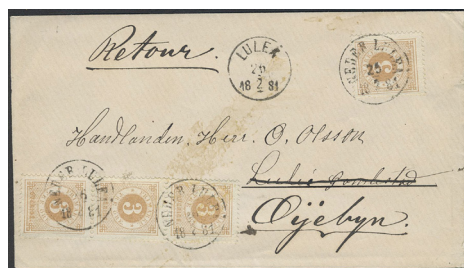 Retour.
LULEÅ
25
2
18 81
NEDER LULEÅ
25
18 2 81
3
Handlanden, Herr. O. Olsson
Luleå Gamlestad
Öijebyn.
NEDER LULEÅ
18 2 81
3
3
3
NEDER LULEÅ
18 2 81